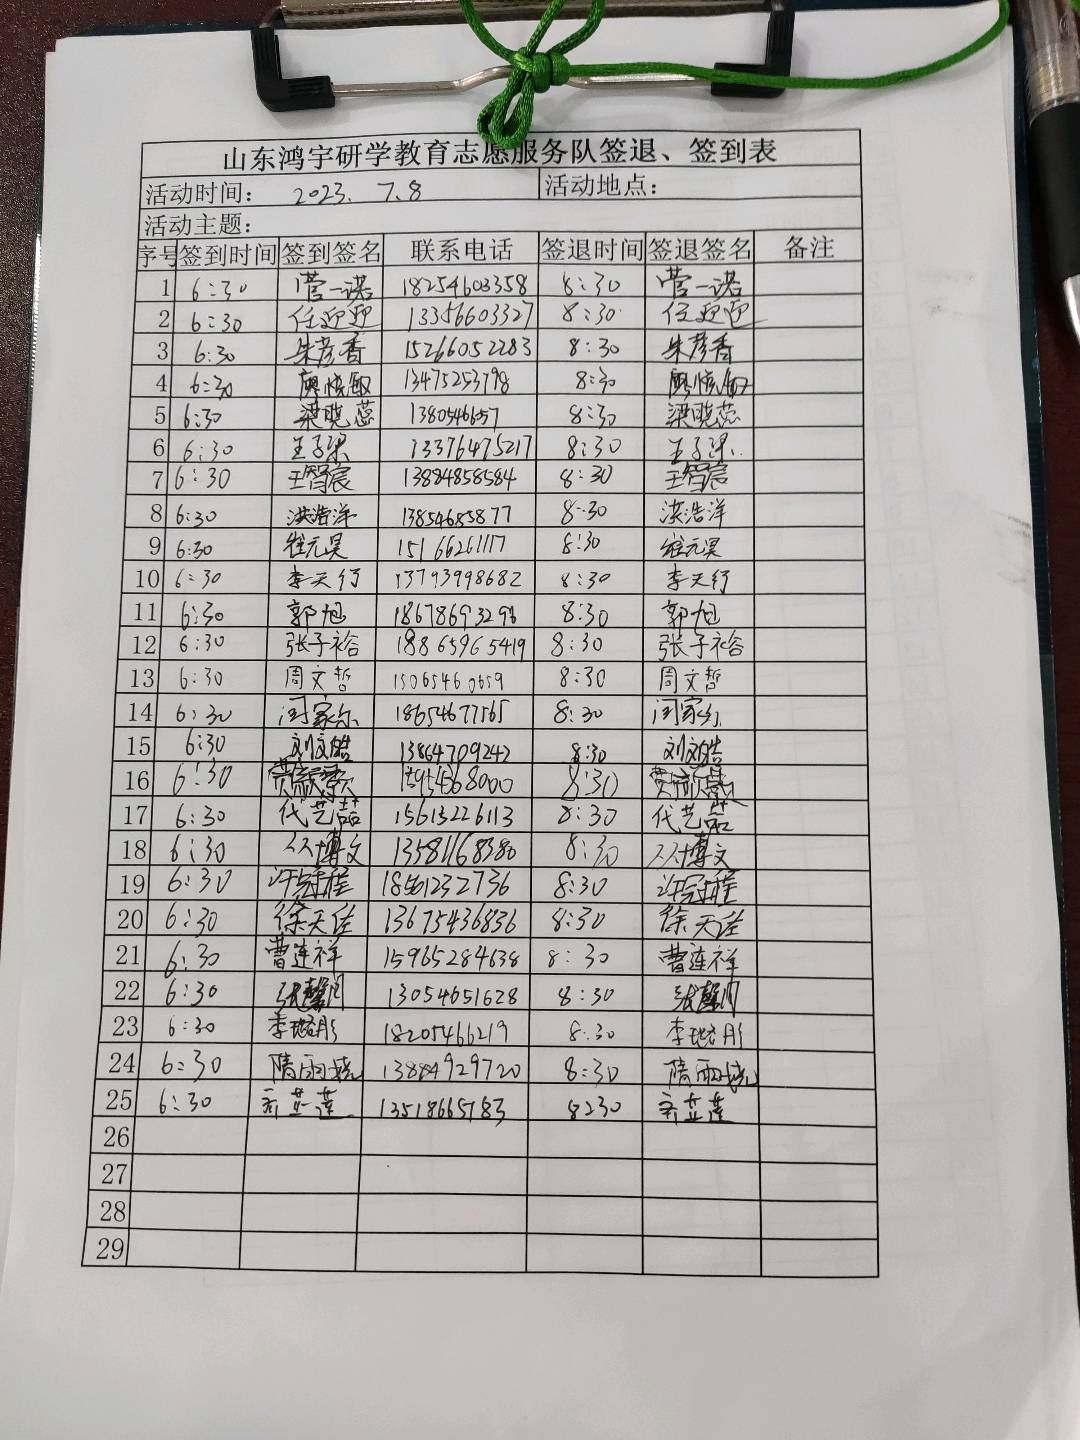 山东鸿宇研学教育志愿服务队签退、签到表
活动时间: 2023. 7.8 活动地点:
活动主题:
序号 签到时间 签到签名 联系电话 签退时间 签退签名 备注
1 6:30 菅一诺 18254603358 8:30 菅一诺
2 6:30 任迎迎 13356603327 8:30 任迎迎
3 6:30 朱彦香 15266052283 8:30 朱彦香
4 6:30 13475253798 8:30
5 6:30 梁晓蕊 1380546657 8:30 梁晓蕊
6 6:30 王子梁 13376475217 8:30 王子梁
7 6:30 王智宸 13884858584 8:30 王智宸
8 6:30 洪浩洋 13854685877 8:30 洪浩洋
9 6:30 崔元昊 15166261117 8:30 崔元昊
10 6:30 李天行 13793998682 8:30 李天行
11 6:30 郭旭 18678693298 8:30 郭旭
12 6:30 张子裕 18865965419 8:30 张子裕
13 6:30 周文哲 8:30 周文哲
14 6:30 18654677565 8:30
15 6:30 刘文皓 13864709242 8:30 刘文皓
16 6:30 8:30
17 6:30 代艺喆 15613226113 8:30 代艺喆
18 6:30 丛博文 13581168380 8:30 丛博文
19 6:30 许冠程 18561232736 8:30 许冠程
20 6:30 徐天佐 13675436836 8:30 徐天佐
21 6:30 曹连祥 15965284638 8:30 曹连祥
22 6:30 张馨月 13054651628 8:30 张馨月
23 6:30 李璐彤 18205466219 8:30 李璐彤
24 6:30 隋雨晓 13884929720 8:30 隋雨晓
25 6:30 13518665783 8:30
26
27
28
29